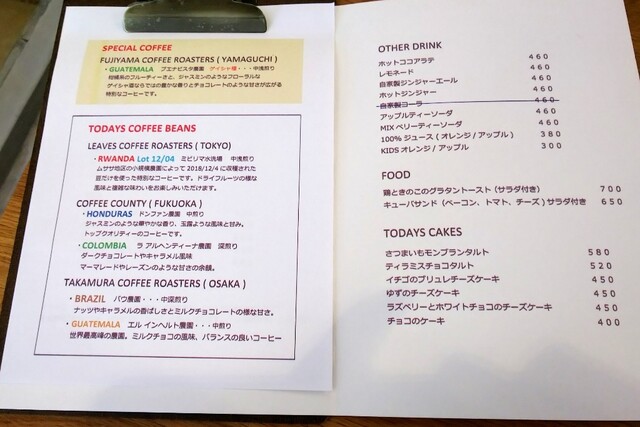 SPECIAL COFFEE
FUJIYAMA COFFEE ROASTERS ( YAMAGUCHI )
・GUATEMALA ブエナビスタ農園 ゲイシャ種・・・中浅煎り
柑橘系のフルーティーさと、ジャスミンのようなフローラルな
ゲイシャ種ならではの豊かな香りとチョコレートのような甘さが広がる
特別なコーヒーです。
TODAYS COFFEE BEANS
LEAVES COFFEE ROASTERS ( TOKYO)
・RWANDA Lot 12/04 ミビリマ水洗場 中浅煎り
ムササ地区の小規模農園によって 2018/12/4 に収穫された
豆だけを使った特別なコーヒーです。ドライフルーツの様な
風味と複雑な味わいをお楽しみいただけます。
COFFEE COUNTY ( FUKUOKA )
・HONDURAS ドンファン農園 中煎り
ジャスミンのような華やかな香り、玉露のような風味と甘み。
トップクオリティーのコーヒーです。
・COLOMBIA ラ アルヘンティーナ農園 深煎り
ダークチョコレートやキャラメル風味
マーマレードやレーズンのような甘さの余韻。
TAKAMURA COFFEE ROASTERS ( OSAKA )
・BRAZIL バウ農園・・・中深煎り
ナッツやキャラメルの香ばしさとミルクチョコレートの様な甘さ。
・GUATEMALA エル インヘルト農園・・・中煎り
世界最高峰の農園。ミルクチョコの風味、バランスの良いコーヒー
OTHER DRINK
ホットココアラテ 460
レモネード 460
自家製ジンジャーエール 460
ホットジンジャー 460
自家製コーラ 460
アップルティーソーダ 460
MIX ベリーティーソーダ 460
100% ジュース ( オレンジ / アップル ) 380
KIDS オレンジ / アップル 300
FOOD
鶏ときのこのグラタントースト (サラダ付き) 700
キューバサンド (ベーコン、トマト、チーズ) サラダ付き 650
TODAYS CAKES
さつまいもモンブランタルト 580
ティラミスチョコタルト 520
イチゴのブリュレチーズケーキ 450
ゆずのチーズケーキ 450
ラズベリーとホワイトチョコのチーズケーキ 450
チョコのケーキ 400